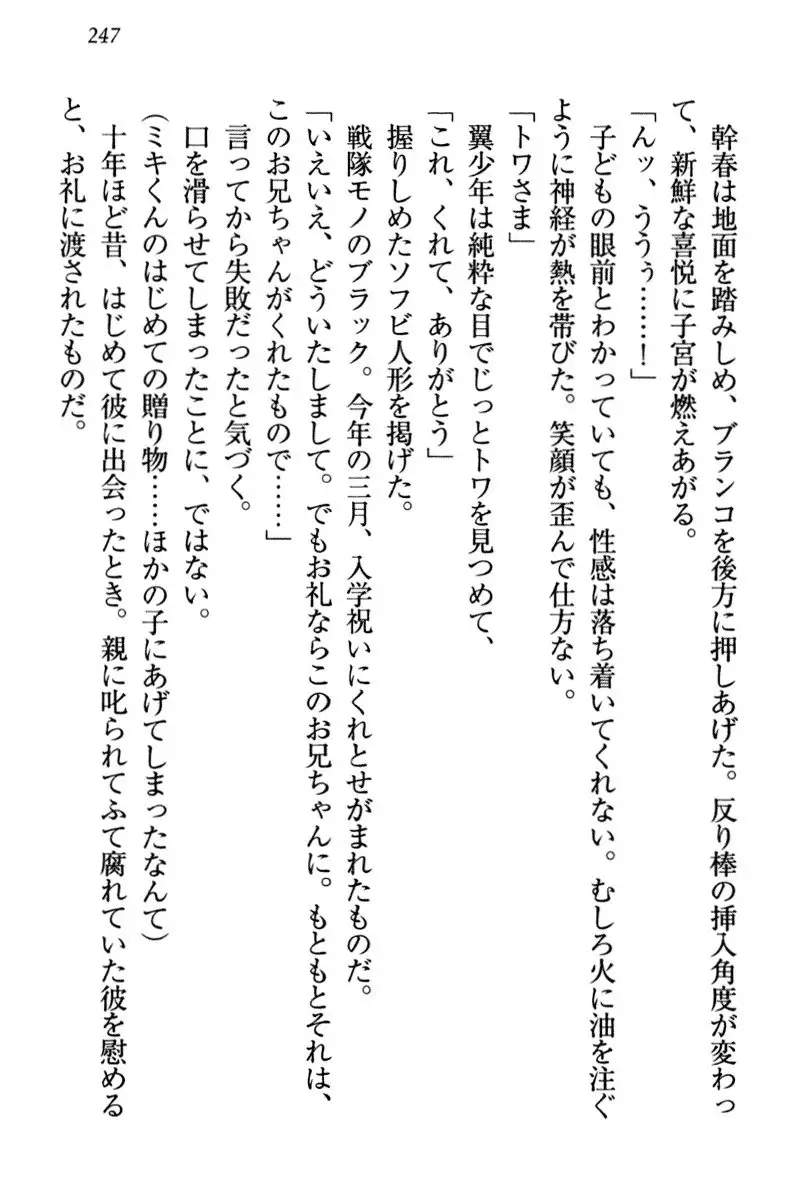 247
幹春は地面を踏みしめ、ブランコを後方に押しあげた。反り棒の挿入角度が変わっ
て、新鮮な喜悦に子宮が燃えあがる。
「んッ、ううぅ……！」
子どもの眼前とわかっていても、性感は落ち着いてくれない。むしろ火に油を注ぐ
ように神経が熱を帯びた。笑顔が歪んで仕方ない。
「トワさま」
翼少年は純粋な目でじっとトワを見つめて、
「これ、くれて、ありがとう」
握りしめたソフビ人形を掲げた。
戦隊モノのブラック。今年の三月、入学祝いにくれとせがまれたものだ。
「いえいえ、どういたしまして。でもお礼ならこのお兄ちゃんに。もともとそれは、
このお兄ちゃんがくれたもので……」
言ってから失敗だったと気づく。
口を滑らせてしまったことに、ではない。
（ミキくんのはじめての贈り物……ほかの子にあげてしまったなんて）
十年ほど昔、はじめて彼に出会ったとき。親に叱られてふて腐れていた彼を慰める
と、お礼に渡されたものだ。